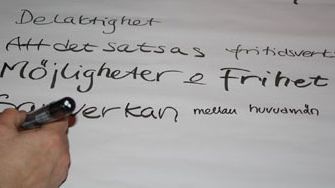 Delaktighet
Att det satsas fritidsvert
Möjligheter & Frihet
Samverkan mellan huvudmän